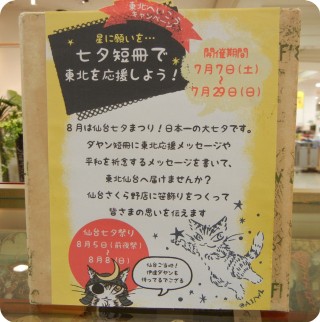 東北へいこう
キャンペーン!
星に願いを…
七夕短冊で
東北を応援しよう!
開催期間
7月7日(土)
~
7月29日(日)
8月は仙台七夕まつり!日本一の大七夕です。
ダヤン短冊に東北応援メッセージや
平和を祈念するメッセージを書いて、
東北仙台へ届けませんか?
仙台さくら野店に笹飾りをつくって
皆さまの思いを伝えます
仙台七夕祭り
8月5日(前夜祭)
~
8月8(日)
仙台ご当地!
伊達ダヤンも
待ってるマニグる